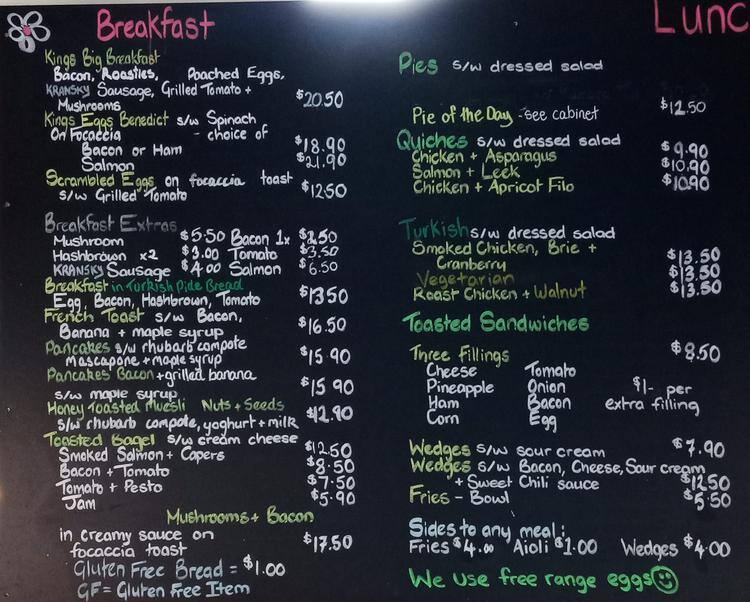 Breakfast
Kings Big Breakfast
Bacon, Roasties, Poached Eggs,
KRANSKY Sausage, Grilled Tomato +
Mushrooms $20.50
Kings Eggs Benedict s/w Spinach
On Focaccia - choice of
Bacon or Ham $18.90
Salmon $21.90
Scrambled Eggs on focaccia toast
s/w Grilled Tomato $12.50
Breakfast Extras
Mushroom $5.50 Bacon 1x $2.50
Hashbrown x2 $3.00 Tomato $3.50
KRANSKY Sausage $4.00 Salmon $6.50
Breakfast in Turkish Pide Bread
Egg, Bacon, Hashbrown, Tomato $13.50
French Toast s/w Bacon,
Banana + maple syrup $16.50
Pancakes s/w rhubarb compote
mascapone + maple syrup $15.90
Pancakes Bacon + grilled banana
s/w maple syrup $15.90
Honey Toasted Muesli Nuts + Seeds
s/w rhubarb compote, yoghurt + milk $12.90
Toasted Bagel s/w cream cheese
Smoked Salmon + Capers $12.50
Bacon + Tomato $8.50
Tomato + Pesto $7.50
Jam $5.90
Mushrooms + Bacon
in creamy sauce on
focaccia toast $17.50
Gluten Free Bread = $1.00
GF = Gluten Free Item
Lunc
Pies s/w dressed salad
Pie of the Day - see cabinet $12.50
Quiches s/w dressed salad
Chicken + Asparagus $9.90
Salmon + Leek $10.90
Chicken + Apricot Filo $10.90
Turkish s/w dressed salad
Smoked Chicken, Brie +
Cranberry $13.50
Vegetarian $13.50
Roast Chicken + Walnut $13.50
Toasted Sandwiches
Three Fillings $8.50
Cheese Tomato
Pineapple Onion $1- per
Ham Bacon extra filling
Corn Egg
Wedges s/w sour cream $7.90
Wedges s/w Bacon, Cheese, Sour cream
+ Sweet Chili sauce $12.50
Fries - Bowl $5.50
Sides to any meal:
Fries $4.00 Aioli $1.00 Wedges $4.00
We use free range eggs